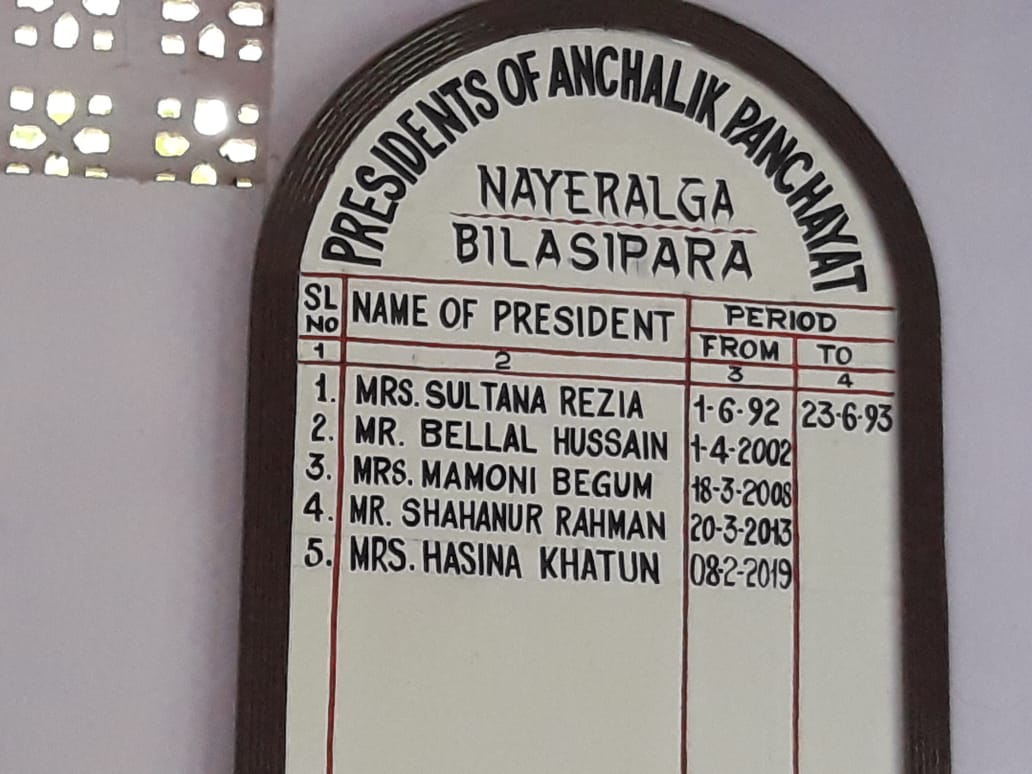 PRESIDENTS OF ANCHALIK PANCHAYAT
NAYERALGA
BILASIPARA
SL NO NAME OF PRESIDENT PERIOD
FROM TO
1 2 3 4
1. MRS. SULTANA REZIA 1-6-92 23-6-93
2. MR. BELLAL HUSSAIN 1-4-2002
3. MRS. MAMONI BEGUM 18-3-2008
4. MR. SHAHANUR RAHMAN 20-3-2013
5. MRS. HASINA KHATUN 08-2-2019